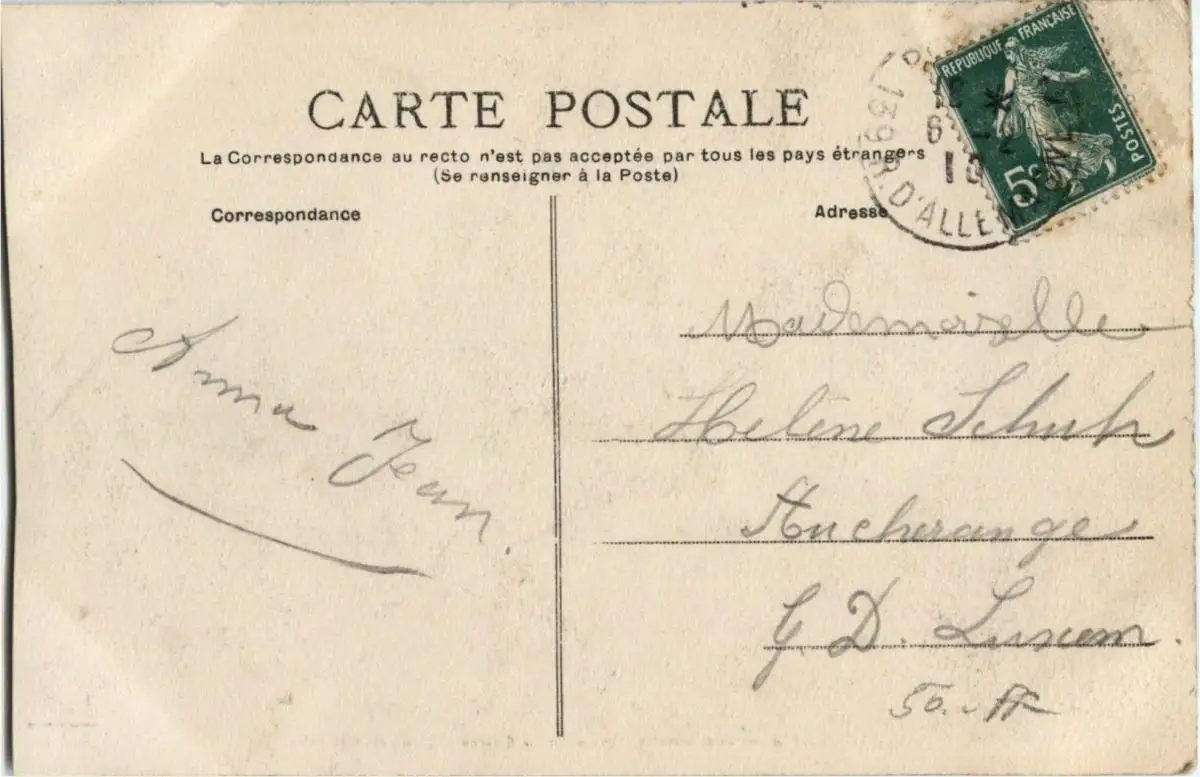 CARTE POSTALE
La Correspondance au recto n'est pas acceptée par tous les pays étrangers
(Se renseigner à la Poste)
Correspondance
Adresse
RÉPUBLIQUE FRANÇAISE
POSTES
5c
139 R. D'ALLE
Anna Jean.
Mademoiselle
Helène Schuh
Hucherange
G. D. Luxem.
50.-